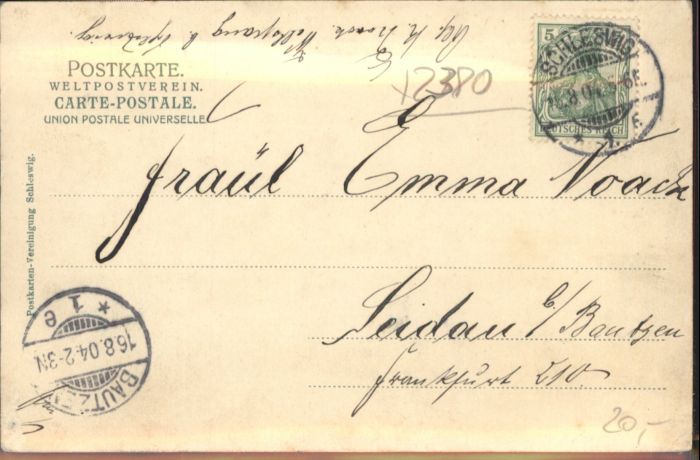 POSTKARTE.
WELTPOSTVEREIN.
CARTE-POSTALE.
UNION POSTALE UNIVERSELLE
12380
5
SCHLESWIG
15.8.04
* 1. F.
DEUTSCHES REICH
Fräul Emma Noack
Seidau b/Bautzen
Frankfurt 210.
Postkarten-Vereinigung Schleswig.
BAUTZEN
16.8.04.2-3N
* 1 e
20,-